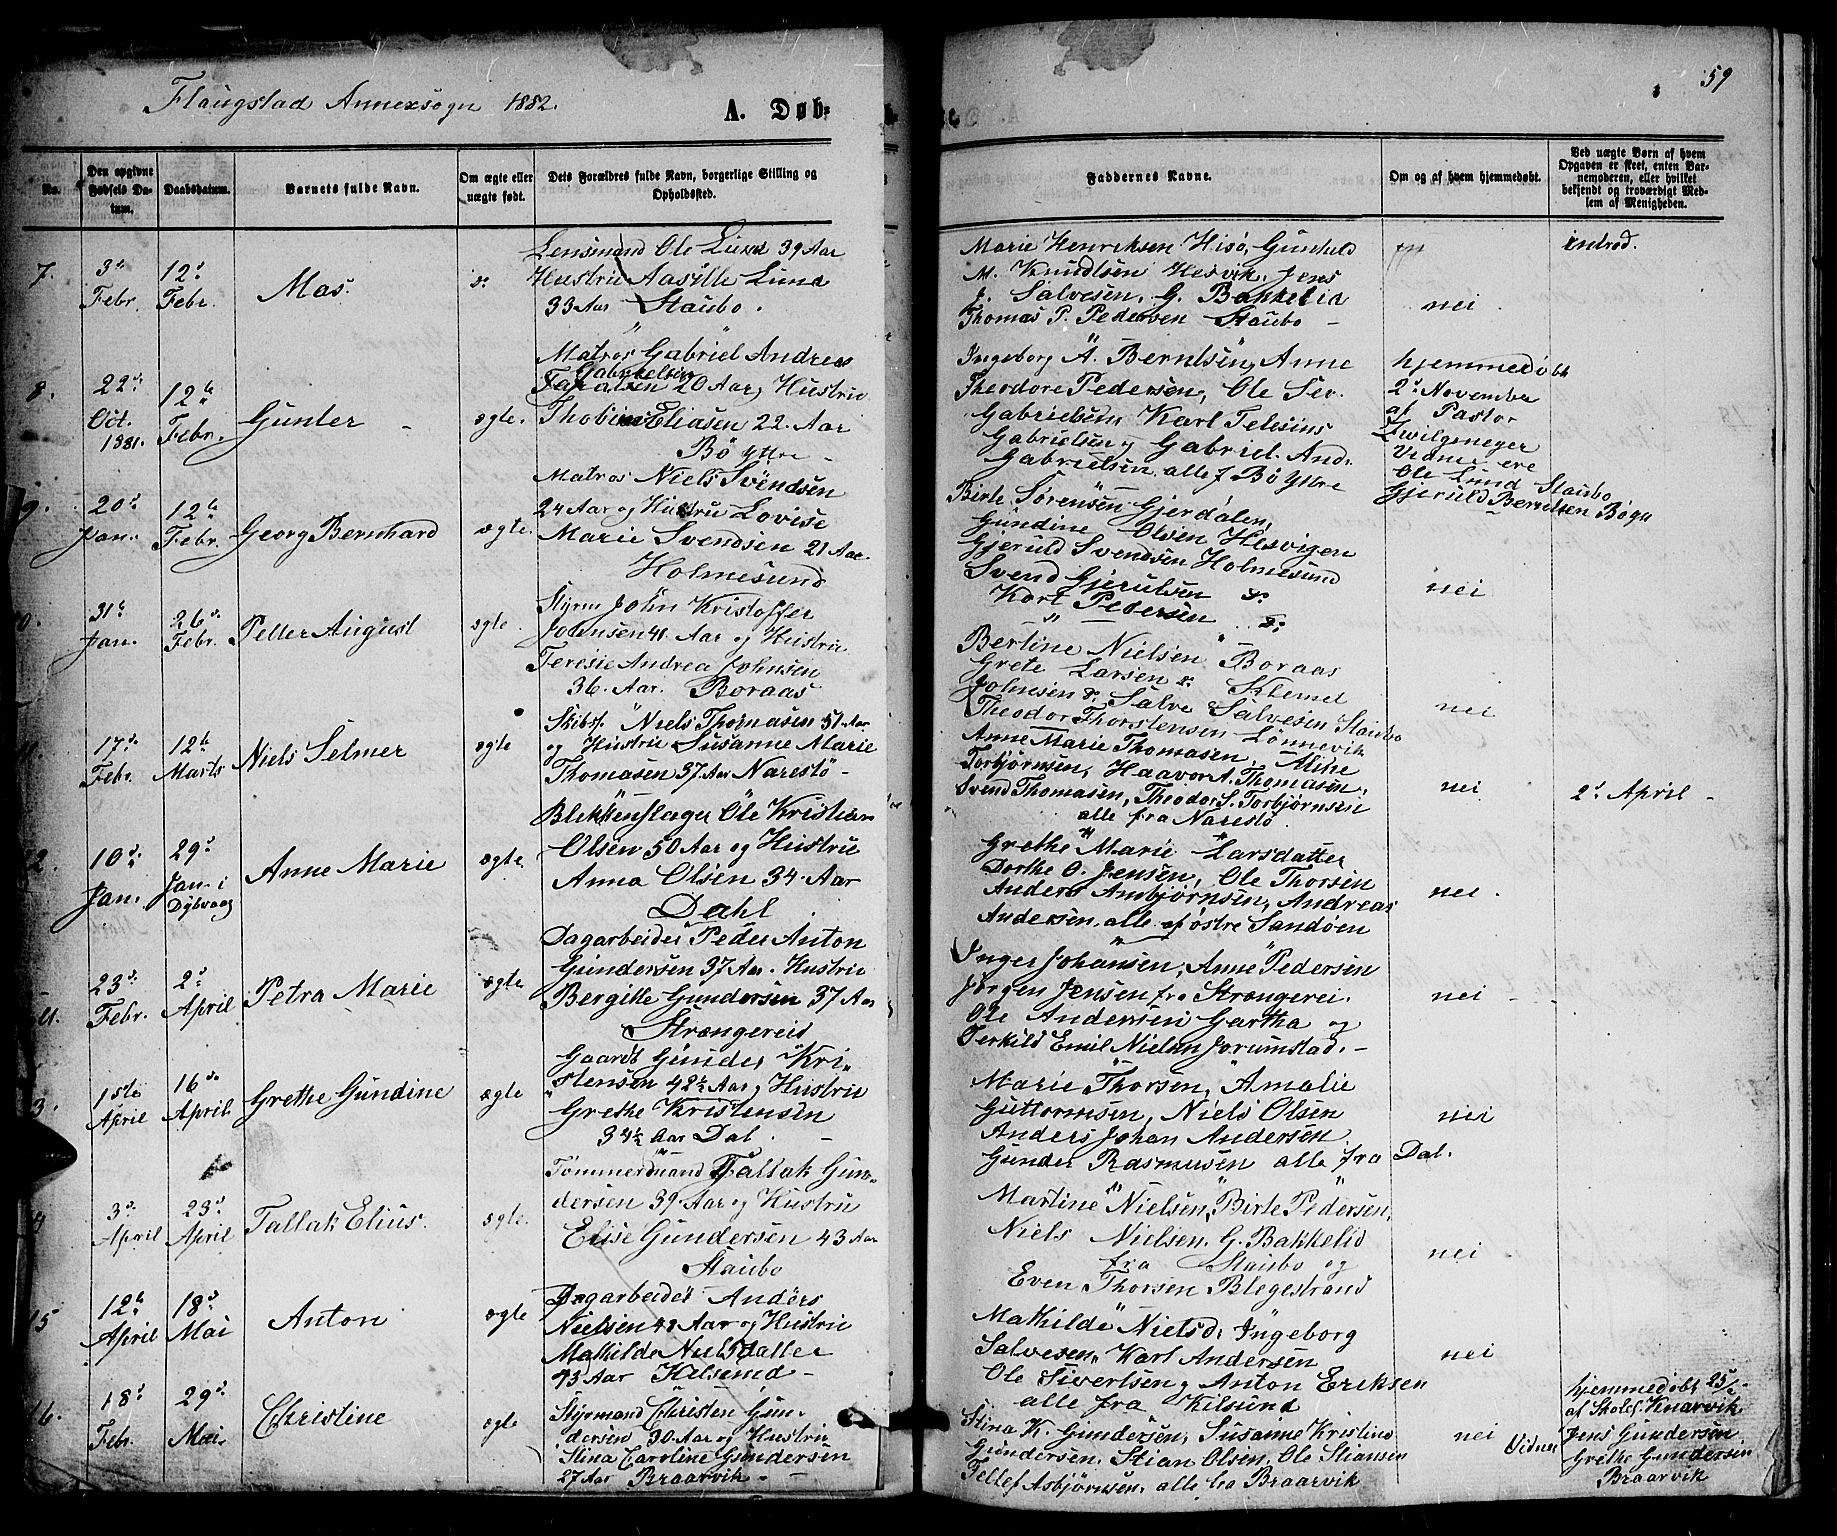 Flaugstad Annexsogn 1882.
A. Døb=
59
No.
Den opgivne Fødsels Datum.
Daabsdatum.
Barnets fulde Navn.
Om ægte eller uægte født.
Dets Forældres fulde Navn, borgerlige Stilling og Opholdssted.
Faddernes Navne.
Om og af hvem hjemmedøbt.
Ved uægte Børn af hvem Opgaven er skeet, enten Barnemoderen, eller hvilket bekjendt og troværdigt Medlem af Menigheden.
7.
3die Febr.
12te Febr.
Mas.
Lensmand Ole Lund 39 Aar
Hustru Aasille Lund
33 Aar Staubo.
Marie Henriksen Hisø, Gunhild
M. Knudtsen Hesvik, Jens
J. Salvesen, G. Bakkelid
Thomas P. Pedersen Staubo -
nei
introd.
8.
22de Oct. 1881.
12te Febr.
Gunter
ægte.
Matros Gabriel Andreas
Gabrielsen
20 Aar, Hustru
Thobine Eliasen 22. Aar
Bø Yttre -
Ingeborg A. Berntsen, Anne
Theodore Pedersen, Ole Sev.
Gabrielsen, Karl Telesius
Gabrielsen og Gabriel. And.
Gabrielsen alle f Bø Yttre
hjemmedøbt
2d November
af Pastor
Zwilgmeyer
Vidner ere
Ole Lund Staubo
Gjeruld Berntsen Bøgn
9.
20de Jan.
12te Febr.
Georg Bernhard
ægte.
Matros Niels Svendsen
24 Aar og Hustru Lovise
Marie Svendsen 21 Aar.
Holmesund
Birte Sørensen Gjerdalen,
Gundine Olsen Hesvigen
Gjeruld Svendsen Holmesund
Svend Gjerulsen do
Karl Pedersen do
nei
0.
31te Jan.
26de Febr.
Petter August
ægte.
Styrm John Kristoffer
Johnsen 41. Aar og Hustru
Teresie Andrea Johnsen
36. Aar. Boraas
Bertine Nielsen Boraas
Grete Larsen do Klemet
Johnsen do Salve Salvesen Staubo
Theodor Thorstensen Lønnevik
nei
17de Febr.
12te Marts
Niels Selmer
ægte
Skibsf. Niels Thomasen 51 Aar
og Hustru Susanne Marie
Thomasen 37 Aar Narestø -
Anne Marie Thomasen, Aline
Torbjørnsen, Haavor A. Thomasen,
Svend Thomasen, Theodor S. Torbjørnsen
alle fra Narestø
nei
2d April -
2.
10de Jan.
29d Jan. i Dybvaag
Anne Marie
ægte
Blikkenslager Ole Kristian
Olsen 50 Aar og Hustru
Anna Olsen 34. Aar
Dahl
Grethe Marie Larsdatter
Dorthe O. Jensen, Ole Thorsen
Anders Ansbjørnsen, Andreas
Andersen, alle af østre Sandøen
nei -
23de Febr.
2d April
Petra Marie
ægte
Dagarbeider Peder Anton
Gundersen 37 Aar. Hustru
Bergitte Gundersen 37 Aar
Strængereid
Inger Johansen, Anne Pedersen
Jørgen Jensen fra Strængerei.
Ole Andersen Gartha og
Terkild Emil Nielsen Jorumstad. -
nei -
3.
1ste April
16de April
Grethe Gundine
ægte
Gaardb Gunder Kri-
stensen 42½ Aar og Hustru
Grethe Kristensen
34½ Aar Dal.
Marie Thorsen, Amalie
Guttormsen, Niels Olsen
Anders Johan Andersen
Gunder Rasmusen alle fra Dal.
nei
4
3de April
23d April
Tallak Elius.
ægte.
Tømmermand Tallak Gun-
dersen 39. Aar og Hustru
Elise Gundersen 43 Aar
Staubo
Martine Nielsen, Birte Pedersen,
Niels Nielsen, G. Bakkelid
fra Staubo og
Even Thorsen Blegestrand
nei
15
12te April
18de Mai
Anton
ægte
Dagarbeider Anders
Nielsen 43 Aar og Hustru
Mathilde Nielsdatter
43 Aar Kilsund -
Mathilde Nielsd, Ingeborg
Salvesen, Karl Andersen
Ole Sivertsen og Anton Eriksen
alle fra Kilsund
nei
16.
18d Febr.
29d Mai.
Christine
ægte
Styrmand Christen Gun-
dersen 30. Aar og Hustru
Stina Caroline Gundersen
27 Aar Braarvik -
Stina K. Gundersen, Susanne Kristine
Gundersen, Stian Olsen, Ole Stiansen
Tellef Asbjørnsen, alle fra Braarvik
nei
hjemmedøbt 25/2
af Skolel. Knarvik
Vidner Jens Gundersen
Grethe Gundersen
Braarvik